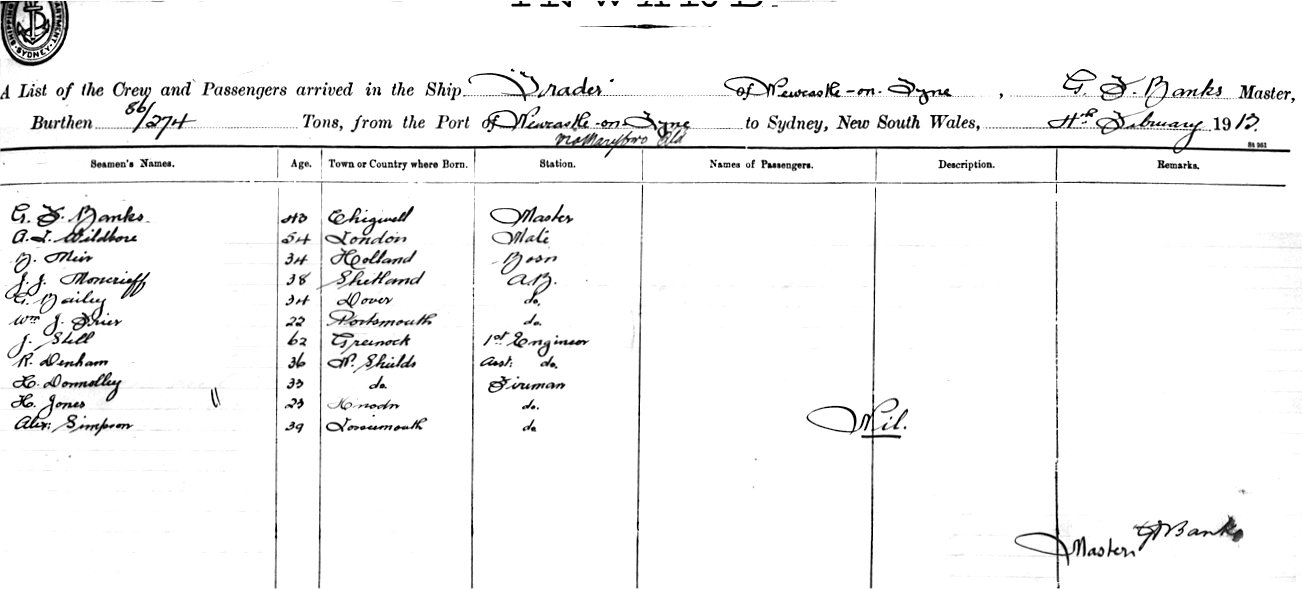 INWARD.
DEPARTMENT. SYDNEY. SHIPPING
A List of the Crew and Passengers arrived in the Ship "Trader" of Newcastle-on-Tyne, G. F. Banks Master,
Burthen 86/274 Tons, from the Port of Newcastle-on-Tyne to Sydney, New South Wales, 4th February 1913.
via Maryboro Qld
St 961
Seamen's Names. Age. Town or Country where Born. Station. Names of Passengers. Description. Remarks.
G. F. Banks 43 Chigwell Master
A. J. Wildbore 54 London Mate
34 Holland Bosn
J. J. Moncrieff 38 Shetland A.B.
G. Bailey 34 Dover do.
Wm J. Frier 22 Portsmouth do.
J. Still 62 Greenock 1st Engineer
R. Denham 36 N. Shields Asst: do.
H. Donnolley 33 do. Fireman
H. Jones 23 do.
Alex: Simpson 39 Lossiemouth do
Nil.
G F Banks
Master